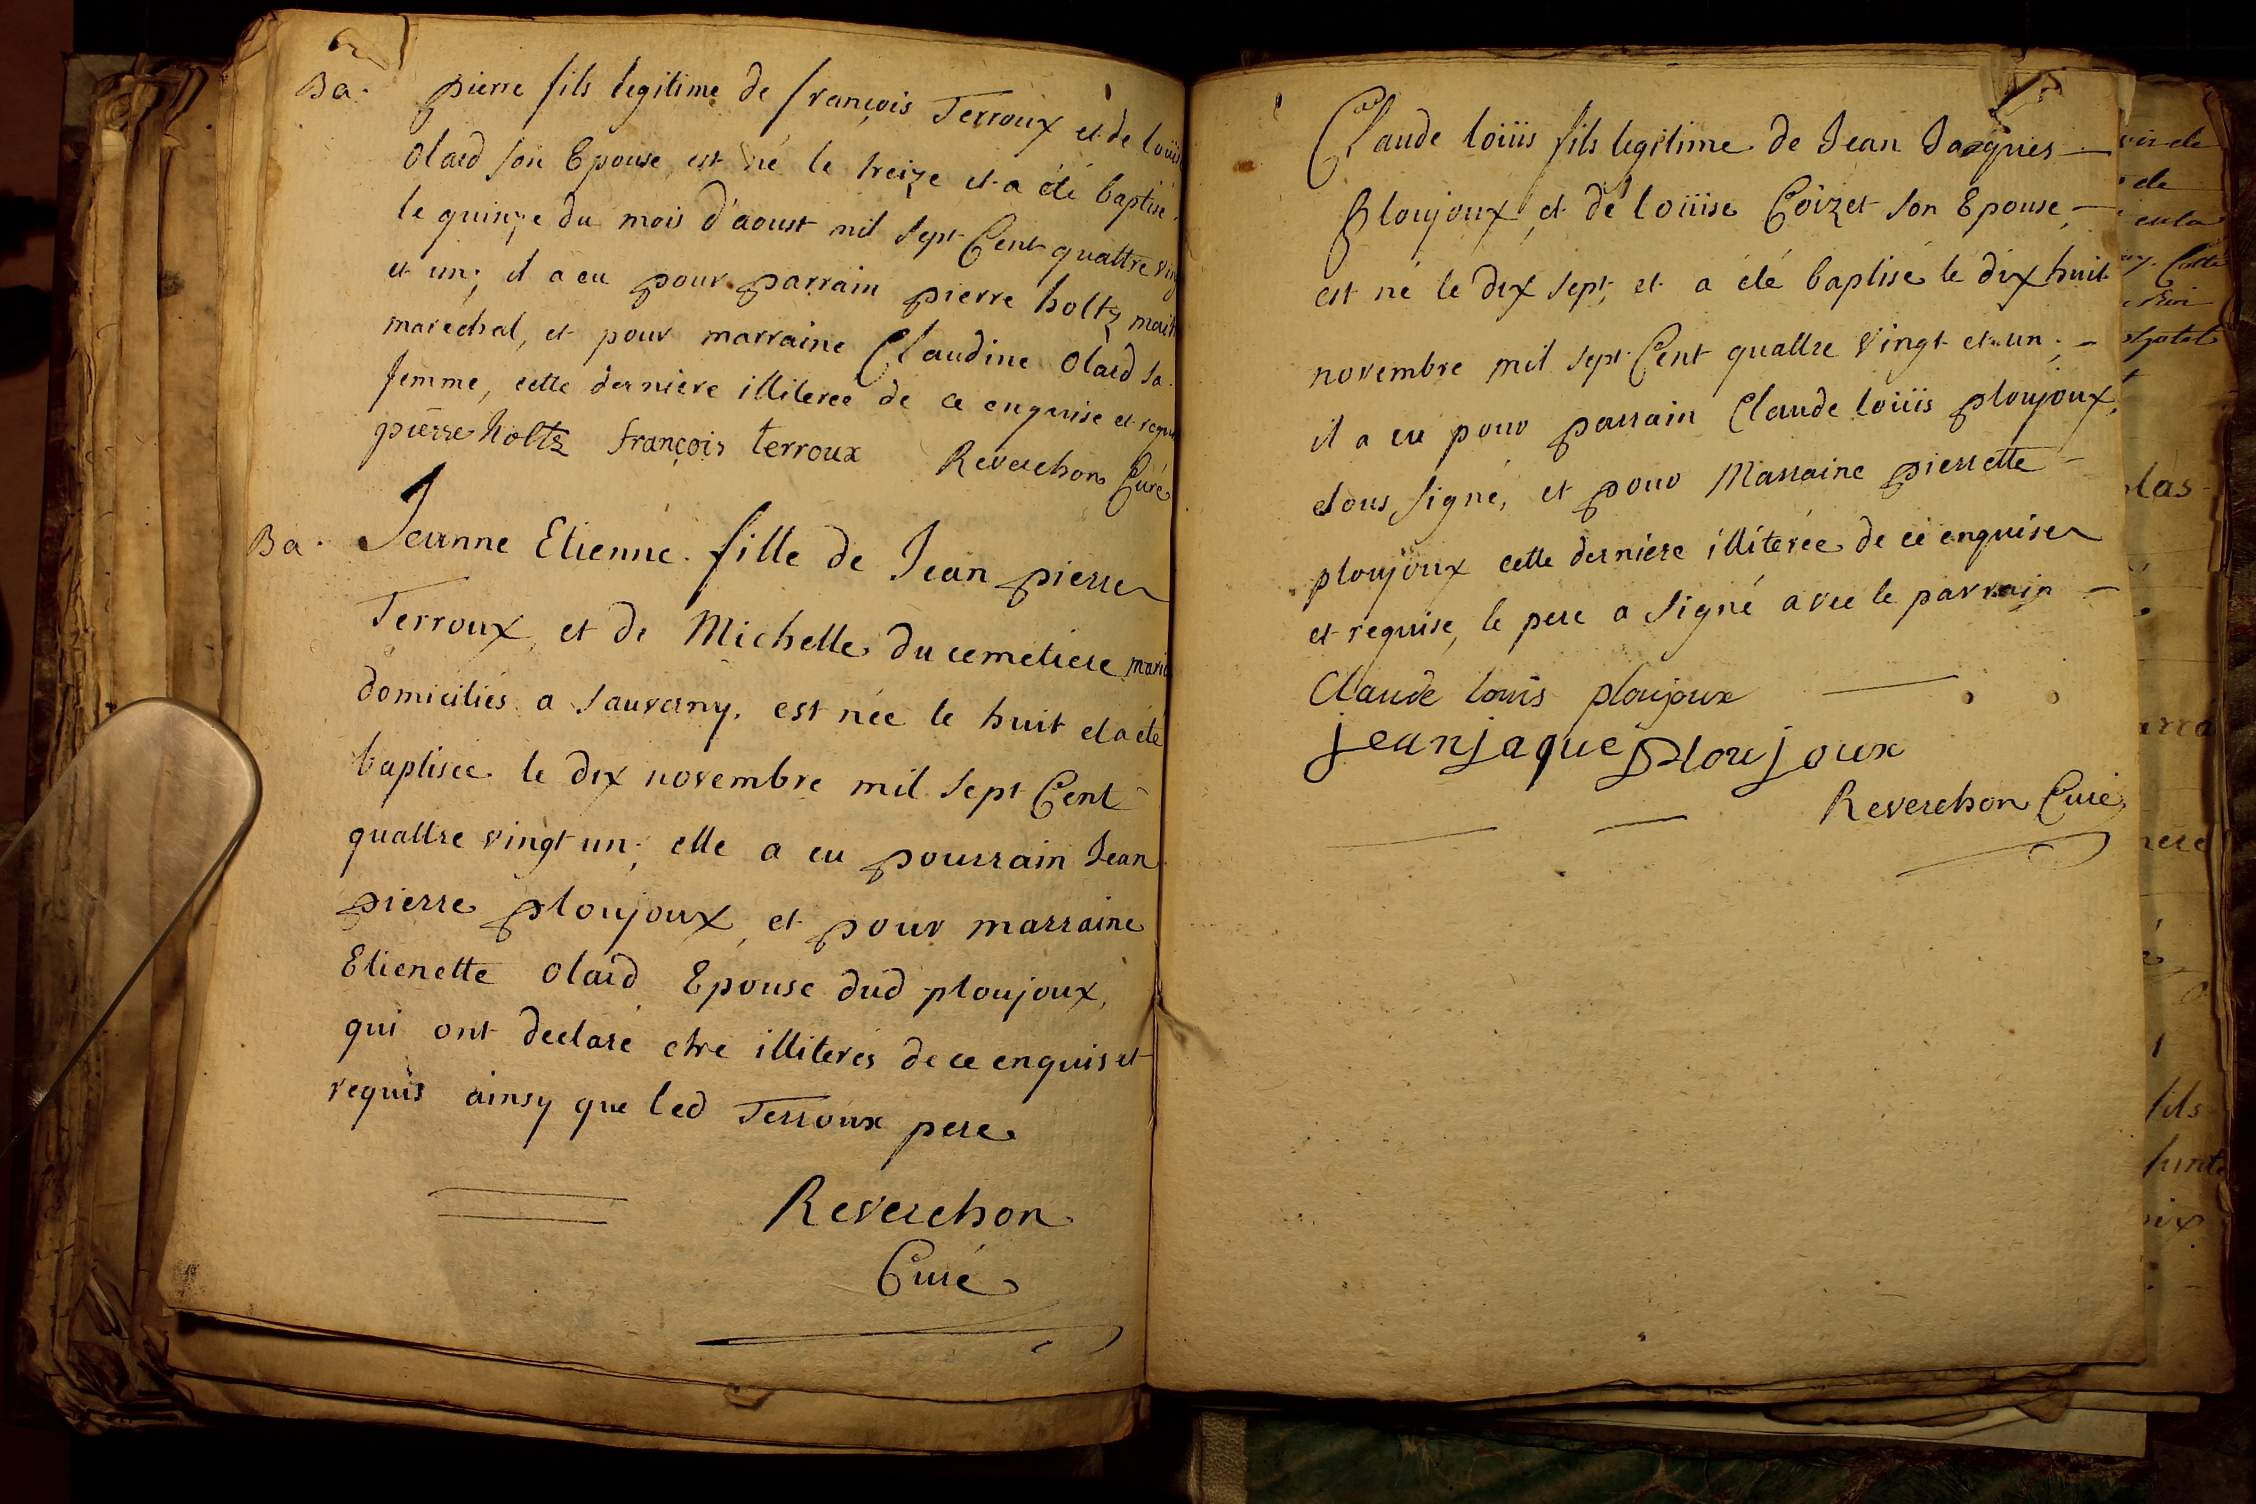 Ba. pierre fils legitime de françois Terroux et de loüis
Olard son Epouse, est né le treize et a été baptisé
le quinze du mois d'aoust mil sept Cent quattre ving
et un; il a eu pour parrain pierre holtz mait
maréchal, et pour marraine Claudine Olard sa
femme, cette derniere illiterée de ce enquise et requi
pierre holtz françois terroux Reverchon Curé
Ba. Jeanne Etienne fille de Jean pierre
Terroux, et de Michelle du cemetiere marié
domiciliés a Sauverny, est née le huit et a été
baptisée le dix novembre mil sept Cent
quattre vingt un; elle a eu pourrain Jean
pierre ploujoux, et pour marraine
Etienette Olard Epouse dud ploujoux,
qui ont declaré etre illiterés de ce enquis et
requis ainsy que led Terroux pere
Reverchon
Curé
Claude loüis fils legitime de Jean Jacques
Ploujoux, et de loüise Coizet son Epouse,
est né le dix sept, et a été baptisé le dix huit
novembre mil sept Cent quattre vingt et un;
il a eu pour parrain Claude loüis ploujoux,
signé, et pour Marraine pierrette
ploujoux cette derniere illiterée de ce enquise
et requise, le pere a signé avec le parrain
Claude louis ploujoux
jeanjaque ploujoux
Reverchon Curé